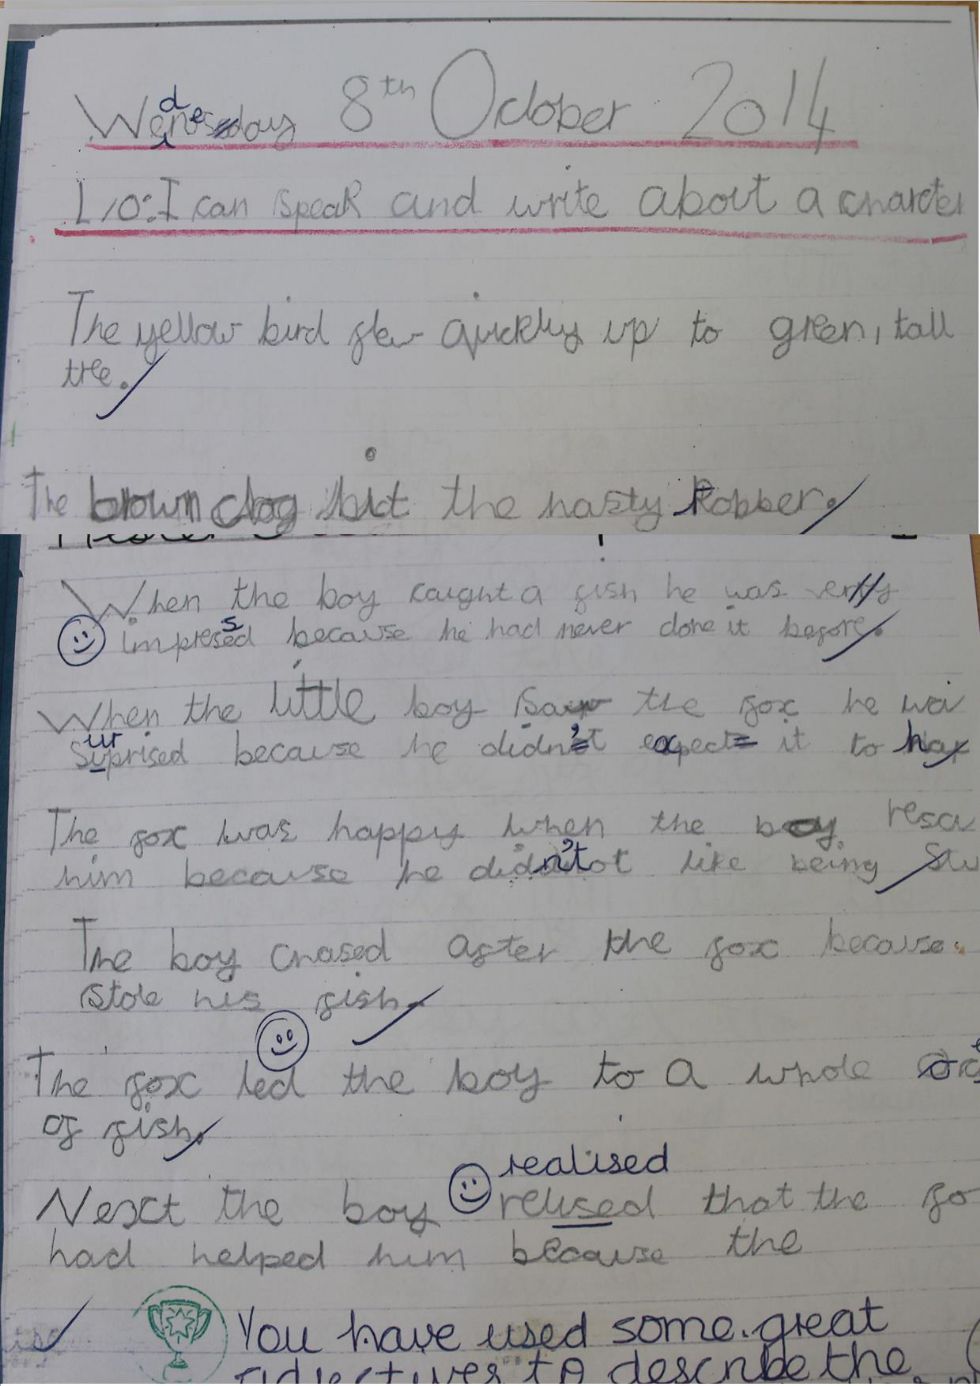 Wednesday 8th October 2014
L/O: I can speak and write about a charcter
The yellow bird flew quickly up to green, tall
tree.
The brown dog bit the nasty Robber.
When the boy caught a fish he was very
impressed because he had never done it before.
When the little boy saw the fox he wa
surprised because he didn't expect it to hap
The fox was happy when the boy rescu
him because he didn't like being stu
The boy chased after the fox because
stole his fish.
The fox led the boy to a whole
of fish.
realised
Next the boy relised that the fo
had helped him because the
You have used some great
adjectives to describe the